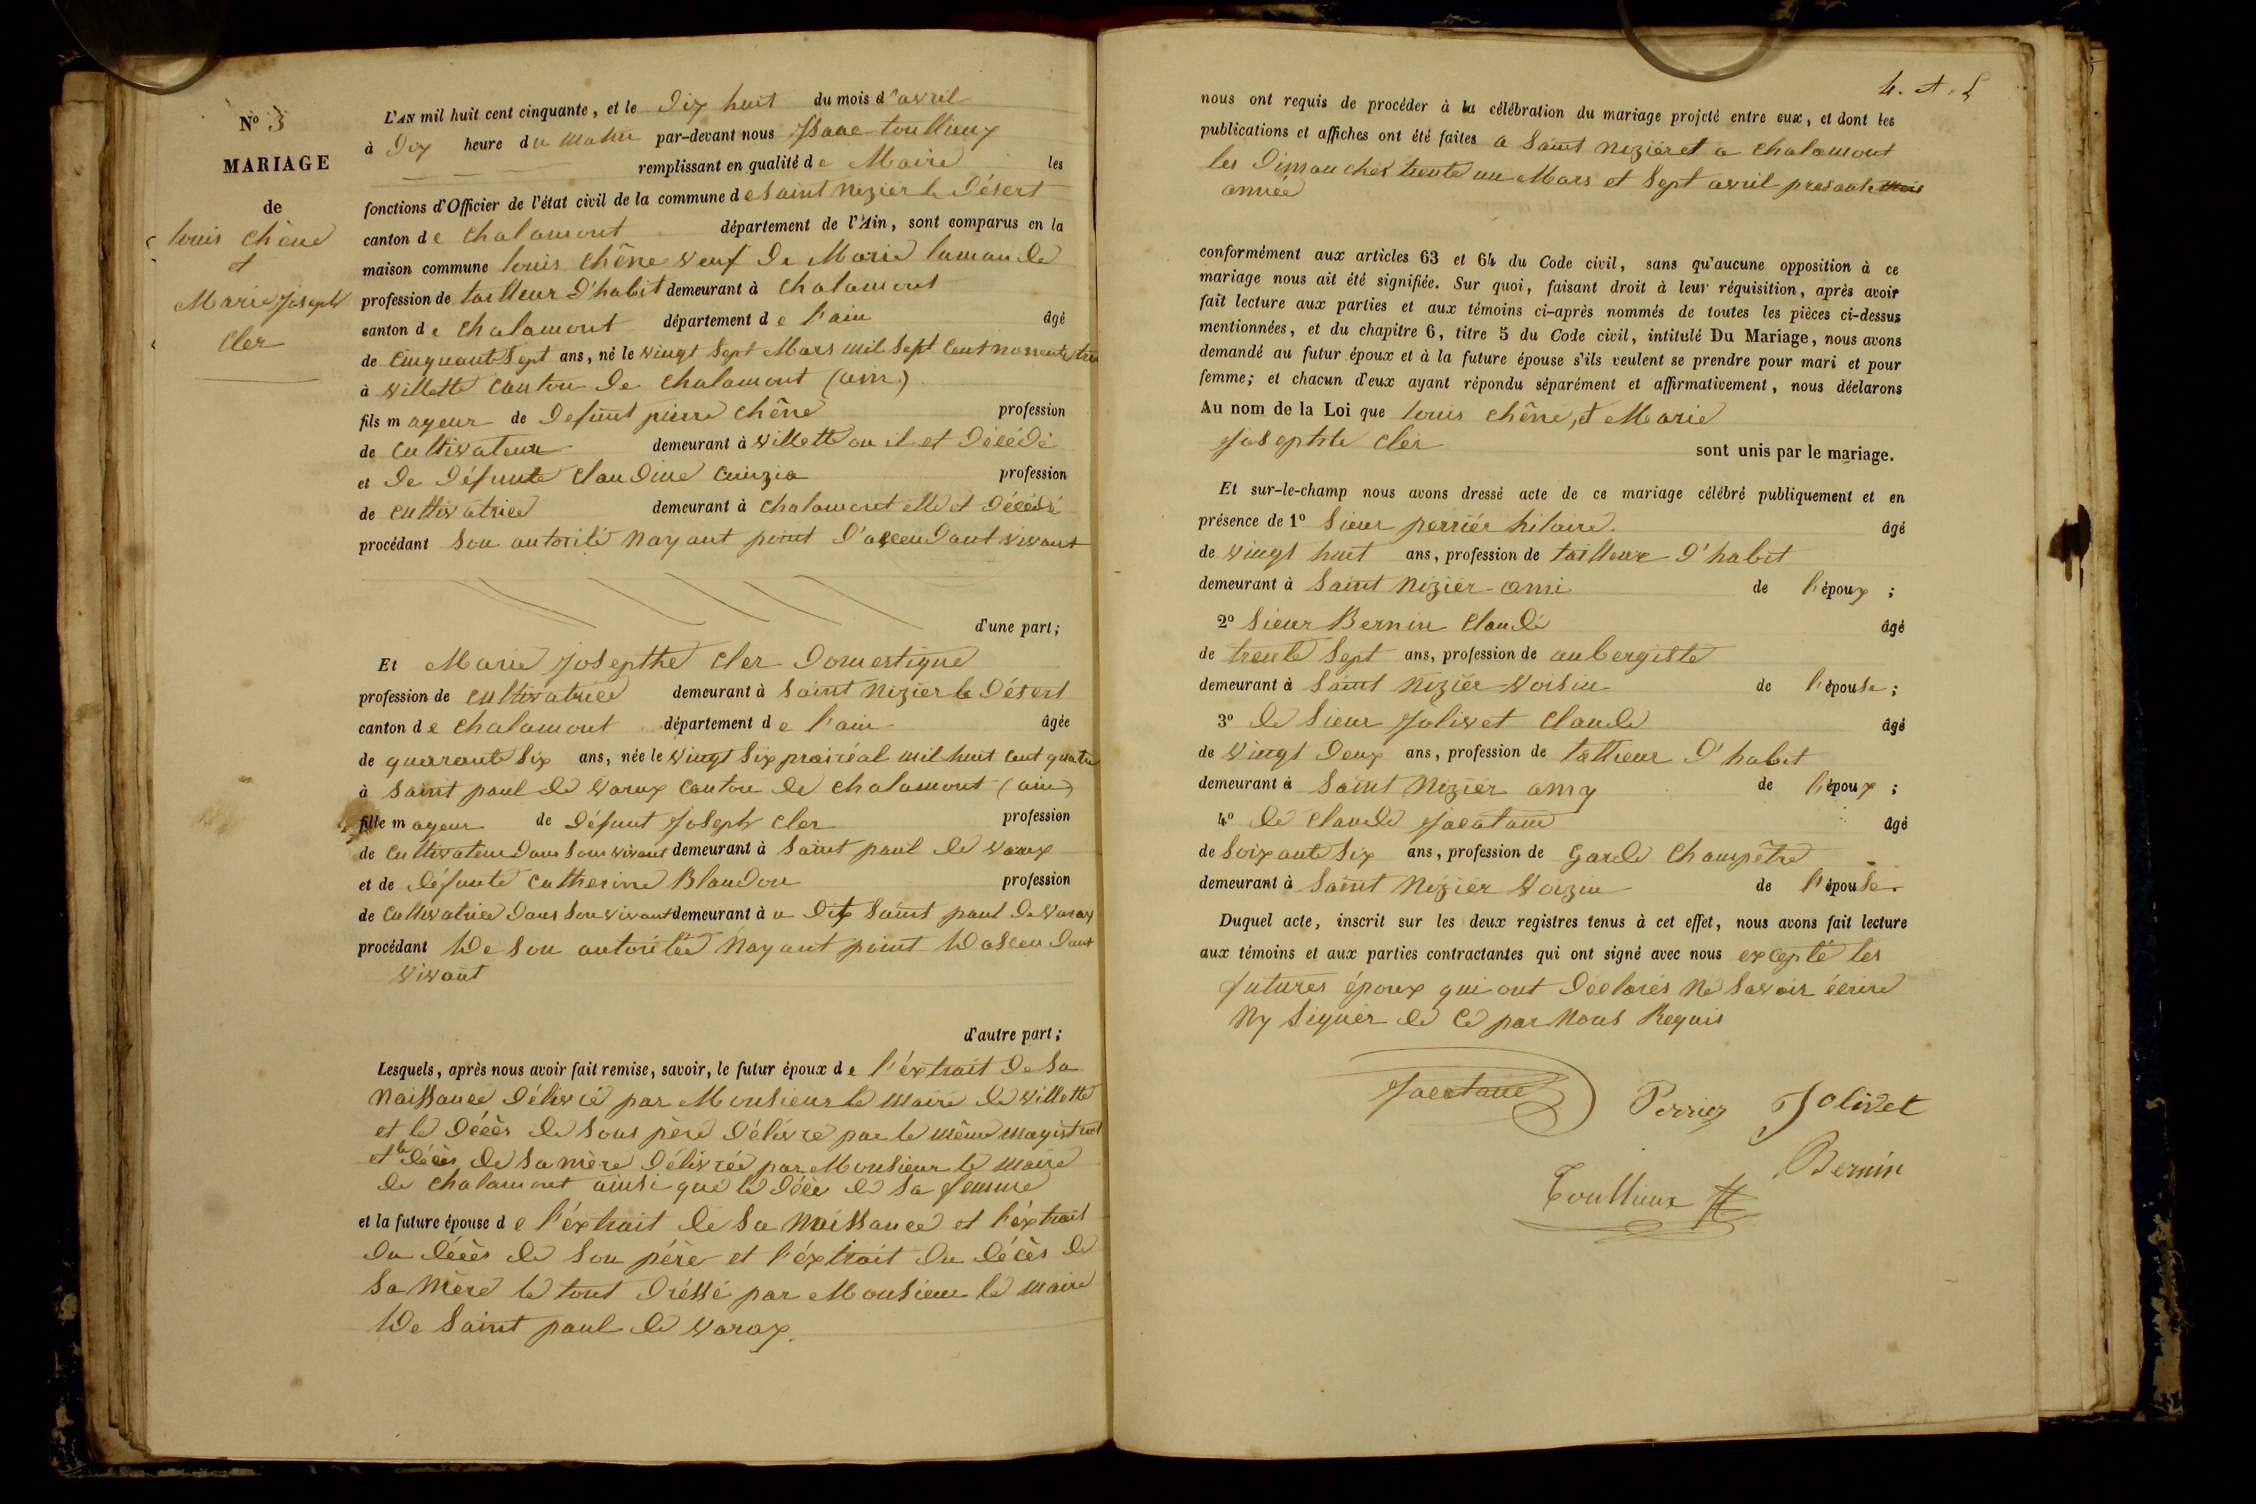 N° 3
MARIAGE
de
louis chêne
et
Marie Joseph
Cler
L'AN mil huit cent cinquante, et le Dix huit du mois d'avril
à Dix heure du matin par-devant nous Isaac toullieux
remplissant en qualité de Maire les
fonctions d'Officier de l'état civil de la commune de Saint nizier le Désert
canton de chalamont département de l'Ain, sont comparus en la
maison commune louis chêne veuf De Marie
profession de tailleur D'habit demeurant à chalamont
canton de chalamont département de l'ain âgé
de Cinquante Sept ans, né le vingt Sept Mars mil Sept Cent nonente
à villette canton De chalamont (ain)
fils mayeur de Defunt pierre chêne profession
de Cultivateur demeurant à villette ou il et Décédé
et De Défunte Claudine profession
de cultivatrice demeurant à chalamont elle et Décédé
procédant Son autorité Nayant point D'ascendant vivant
d'une part;
Et Marie Josepthe Cler Domestique
profession de cultivatrice demeurant à Saint Nizier le Désert
canton de chalamont département de l'ain âgée
de quarante Six ans, née le vingt Six prairéal mil huit cent quatre
à Saint paul de varax canton de chalamont (ain)
fille mayeur de Défunt Joseph Cler profession
de Cultivateur Dans Son vivant demeurant à Saint paul de varax
et de défunte catherine Blandon profession
de Cultivatrice Dans Son vivant demeurant à a Dit Saint paul De varax
procédant De Son autoritée Nayant point Dascendant
vivant
d'autre part;
Lesquels, après nous avoir fait remise, savoir, le futur époux de l'éxtrait De Sa
Naissance Délivré par Monsieur le Maire de villette
et le Décès de Sons père Délivré par le même magistrat
et le décès de Sa mère Délivrée par Monsieur le maire
de chalamont ainsi que le Décè de Sa femme
et la future épouse de l'éxtrait de Sa Naissance et l'éxtrait
du décès de Son père et l'éxtrait du décès de
Sa Mère le tout Dréssé par Monsieur le maire
De Saint paul de varax.
4. A. L
nous ont requis de procéder à la célébration du mariage projeté entre eux, et dont les
publications et affiches ont été faites a Saint nizier et a chalamont
les Dimanches trente un Mars et Sept avril presante
année
conformément aux articles 63 et 64 du Code civil, sans qu'aucune opposition à ce
mariage nous ait été signifiée. Sur quoi, faisant droit à leur réquisition, après avoir
fait lecture aux parties et aux témoins ci-après nommés de toutes les pièces ci-dessus
mentionnées, et du chapitre 6, titre 5 du Code civil, intitulé Du Mariage, nous avons
demandé au futur époux et à la future épouse s'ils veulent se prendre pour mari et pour
femme; et chacun d'eux ayant répondu séparément et affirmativement, nous déclarons
Au nom de la Loi que louis chêne, et Marie
Josephte Cler sont unis par le mariage.
Et sur-le-champ nous avons dressé acte de ce mariage célébré publiquement et en
présence de 1° Sieur perriér hilaire. âgé
de vingt huit ans, profession de tailleur D'habit
demeurant à Saint Nizier ami de l'époux;
2° Sieur Bernin Claude âgé
de trente Sept ans, profession de aubergiste
demeurant à Saint Nizier voisin de l'épouse;
3° de Sieur Jolivet Claude âgé
de vingt Deux ans, profession de tallieur D'habit
demeurant à Saint Nizier amy de l'époux;
4° de Claude Jacatane âgé
de Soixante Six ans, profession de Garde Champêtre
demeurant à Saint Nizier voizin de l'épouse.
Duquel acte, inscrit sur les deux registres tenus à cet effet, nous avons fait lecture
aux témoins et aux parties contractantes qui ont signé avec nous excepté les
futures époux qui ont Déclarés Ne Savoir écrire
Ny Signer de Ce par Nous Requis
Jacatane Perrier Jolivet
Bernin
Toullieux